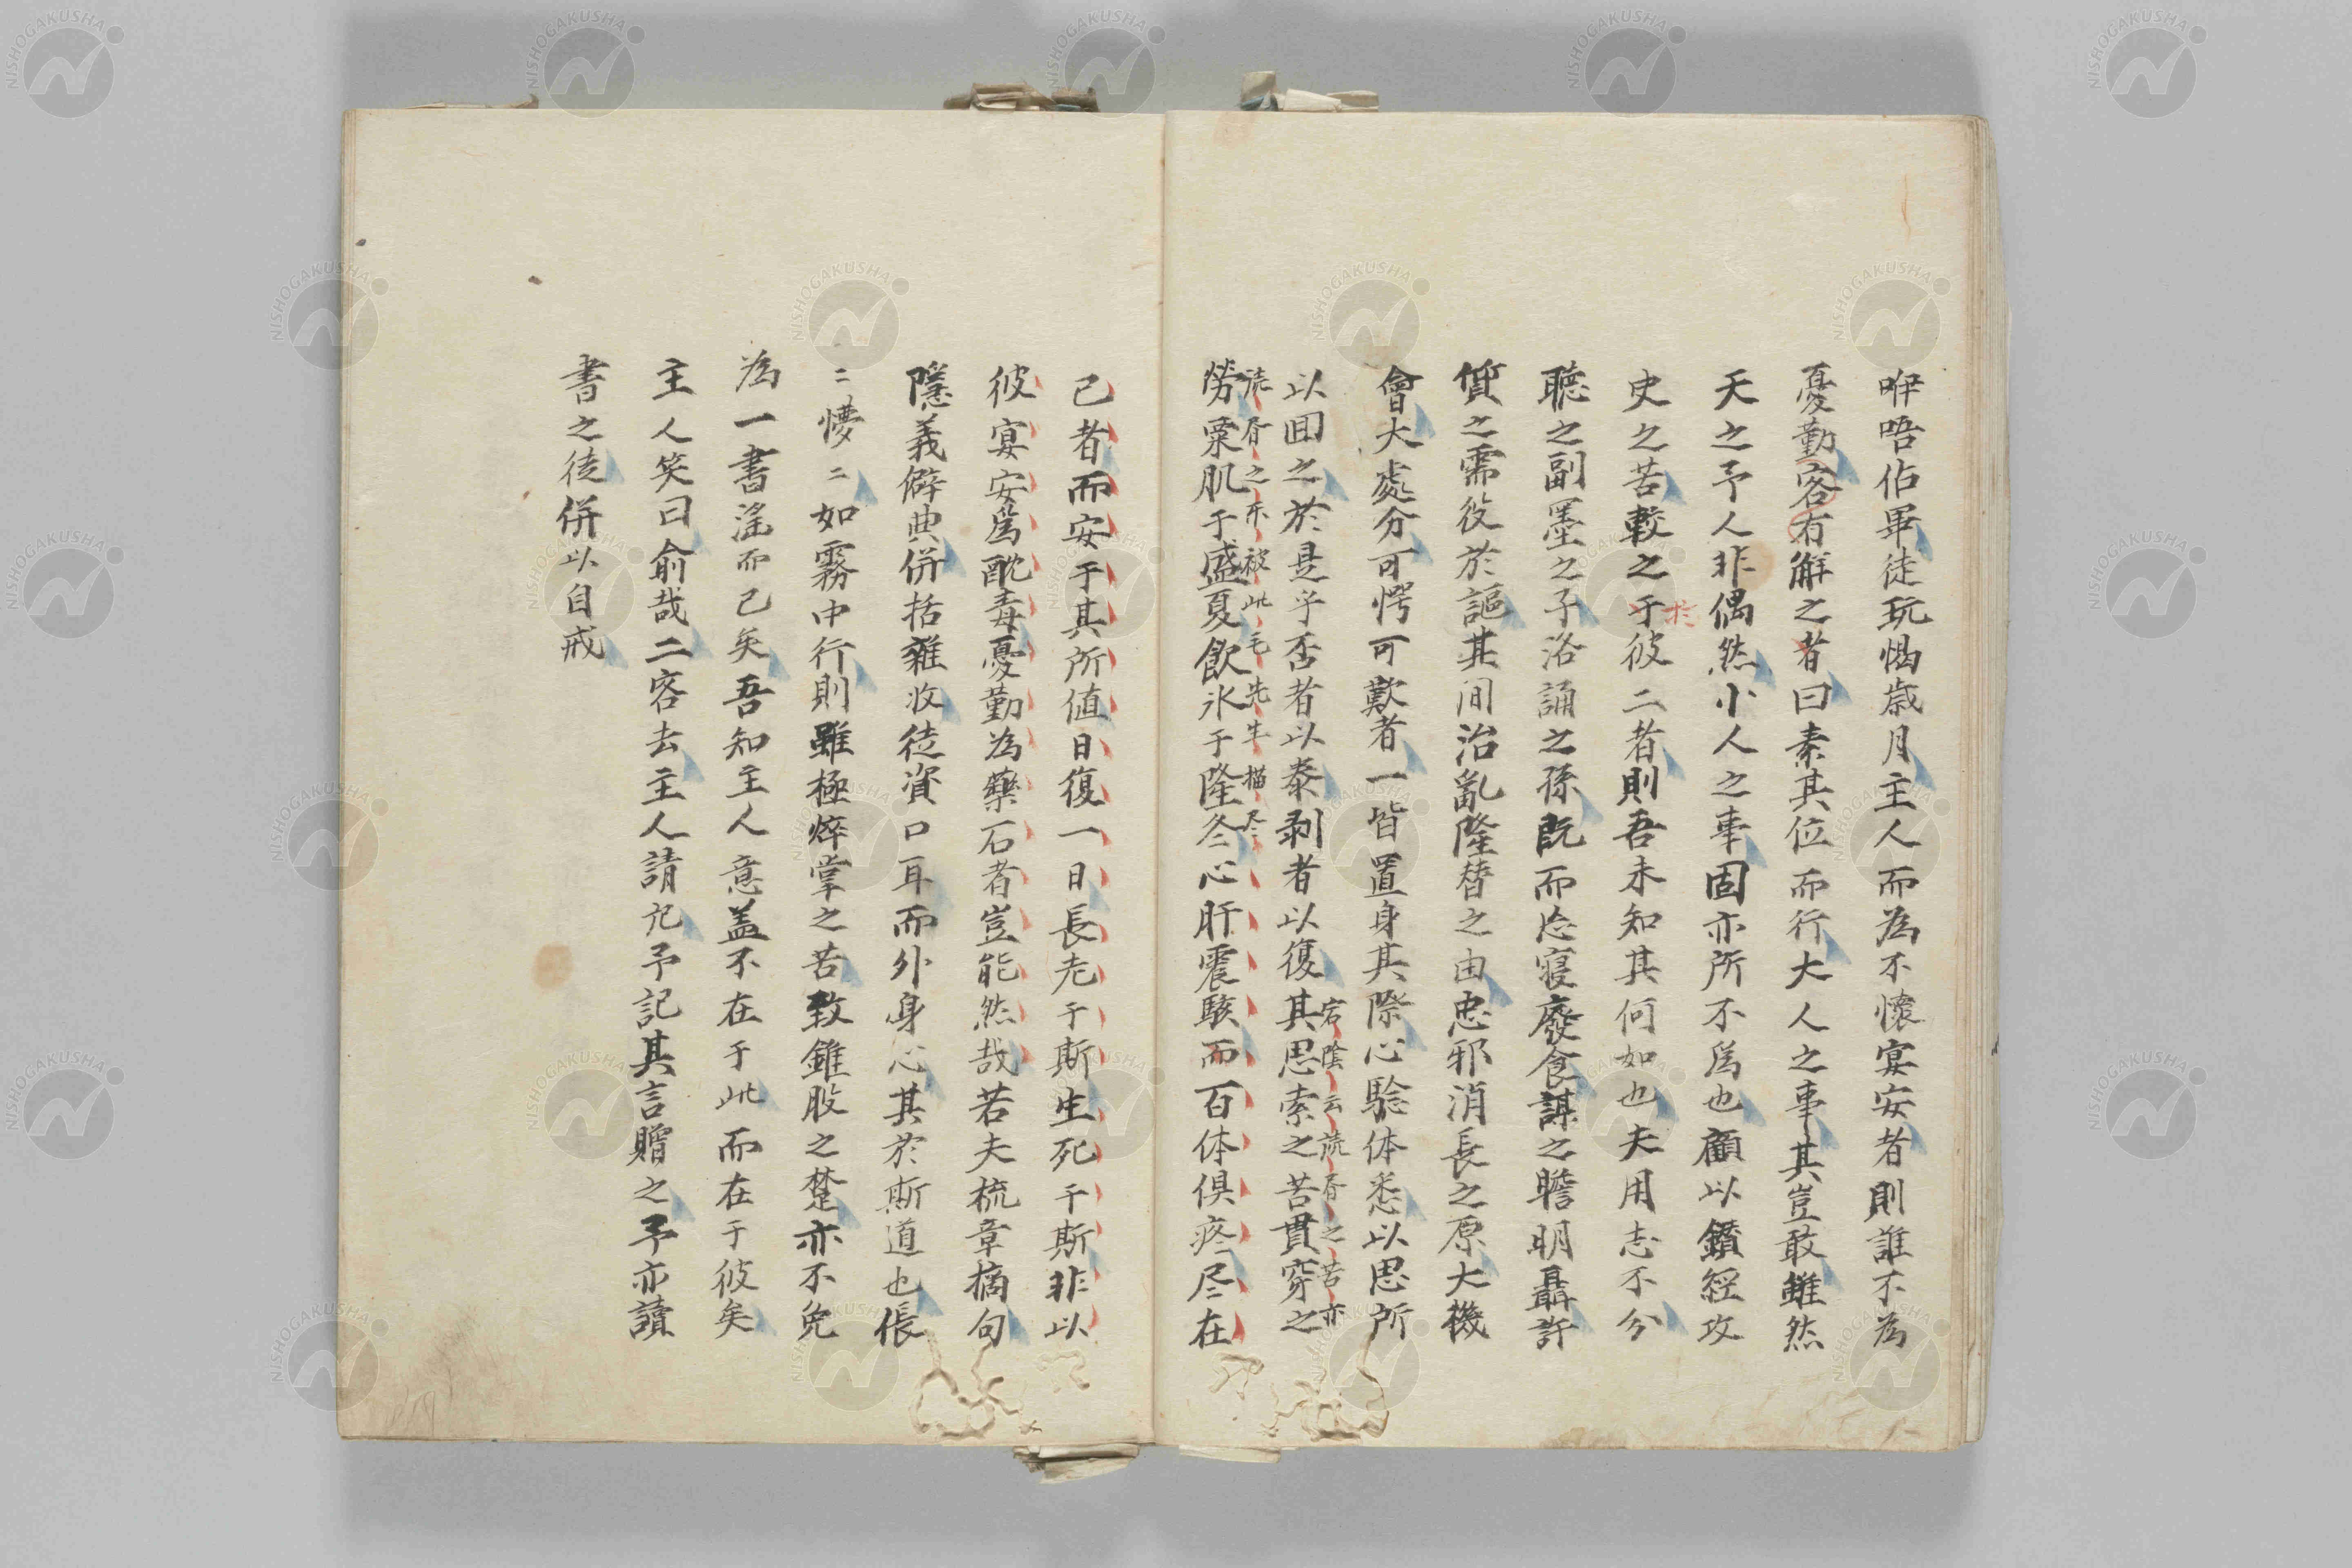 咿唔佔畢徒玩愒歳月主人而為不懐宴安者則誰不為
憂勤客有解之者曰素其位而行大人之事其豈敢雖然
天之予人非偶然小人之事固亦所不為也顧以鑽經攻
史之苦較之于彼二者則吾未知其何如也夫用志不分
於
聽之副墨之子洛誦之孫既而忘寝廢食謀之瞻明聶許
質之需役於謳其间治亂隆替之由忠邪消長之原大機
會大處分可愕可歎者一皆置身其際心驗体悉以思所
以囬之於是乎否者以泰剥者以復其思索之苦貫穿之
宕陰云読者之苦亦
読者之未被此毛先生描尽
勞粟肌于盛夏飲氷于隆冬心肝震駭而百体倶疼尽在
己者而安于其所値日復一日長老于斯生死于斯非以
彼宴安爲酖毒憂勤為藥石者豈能然哉若夫梳章摘句
隠義僻典併括雜收徒資口耳而外身心其於斯道也倀
〻懜〻如霧中行則雖極焠掌之苦致錐股之楚亦不免
為一書淫而已矣吾知主人意盖不在于此而在于彼矣
主人笑曰俞哉二客去主人請記予記其言贈之予亦讀
書之徒併以自戒
NISHOGAKUSHA